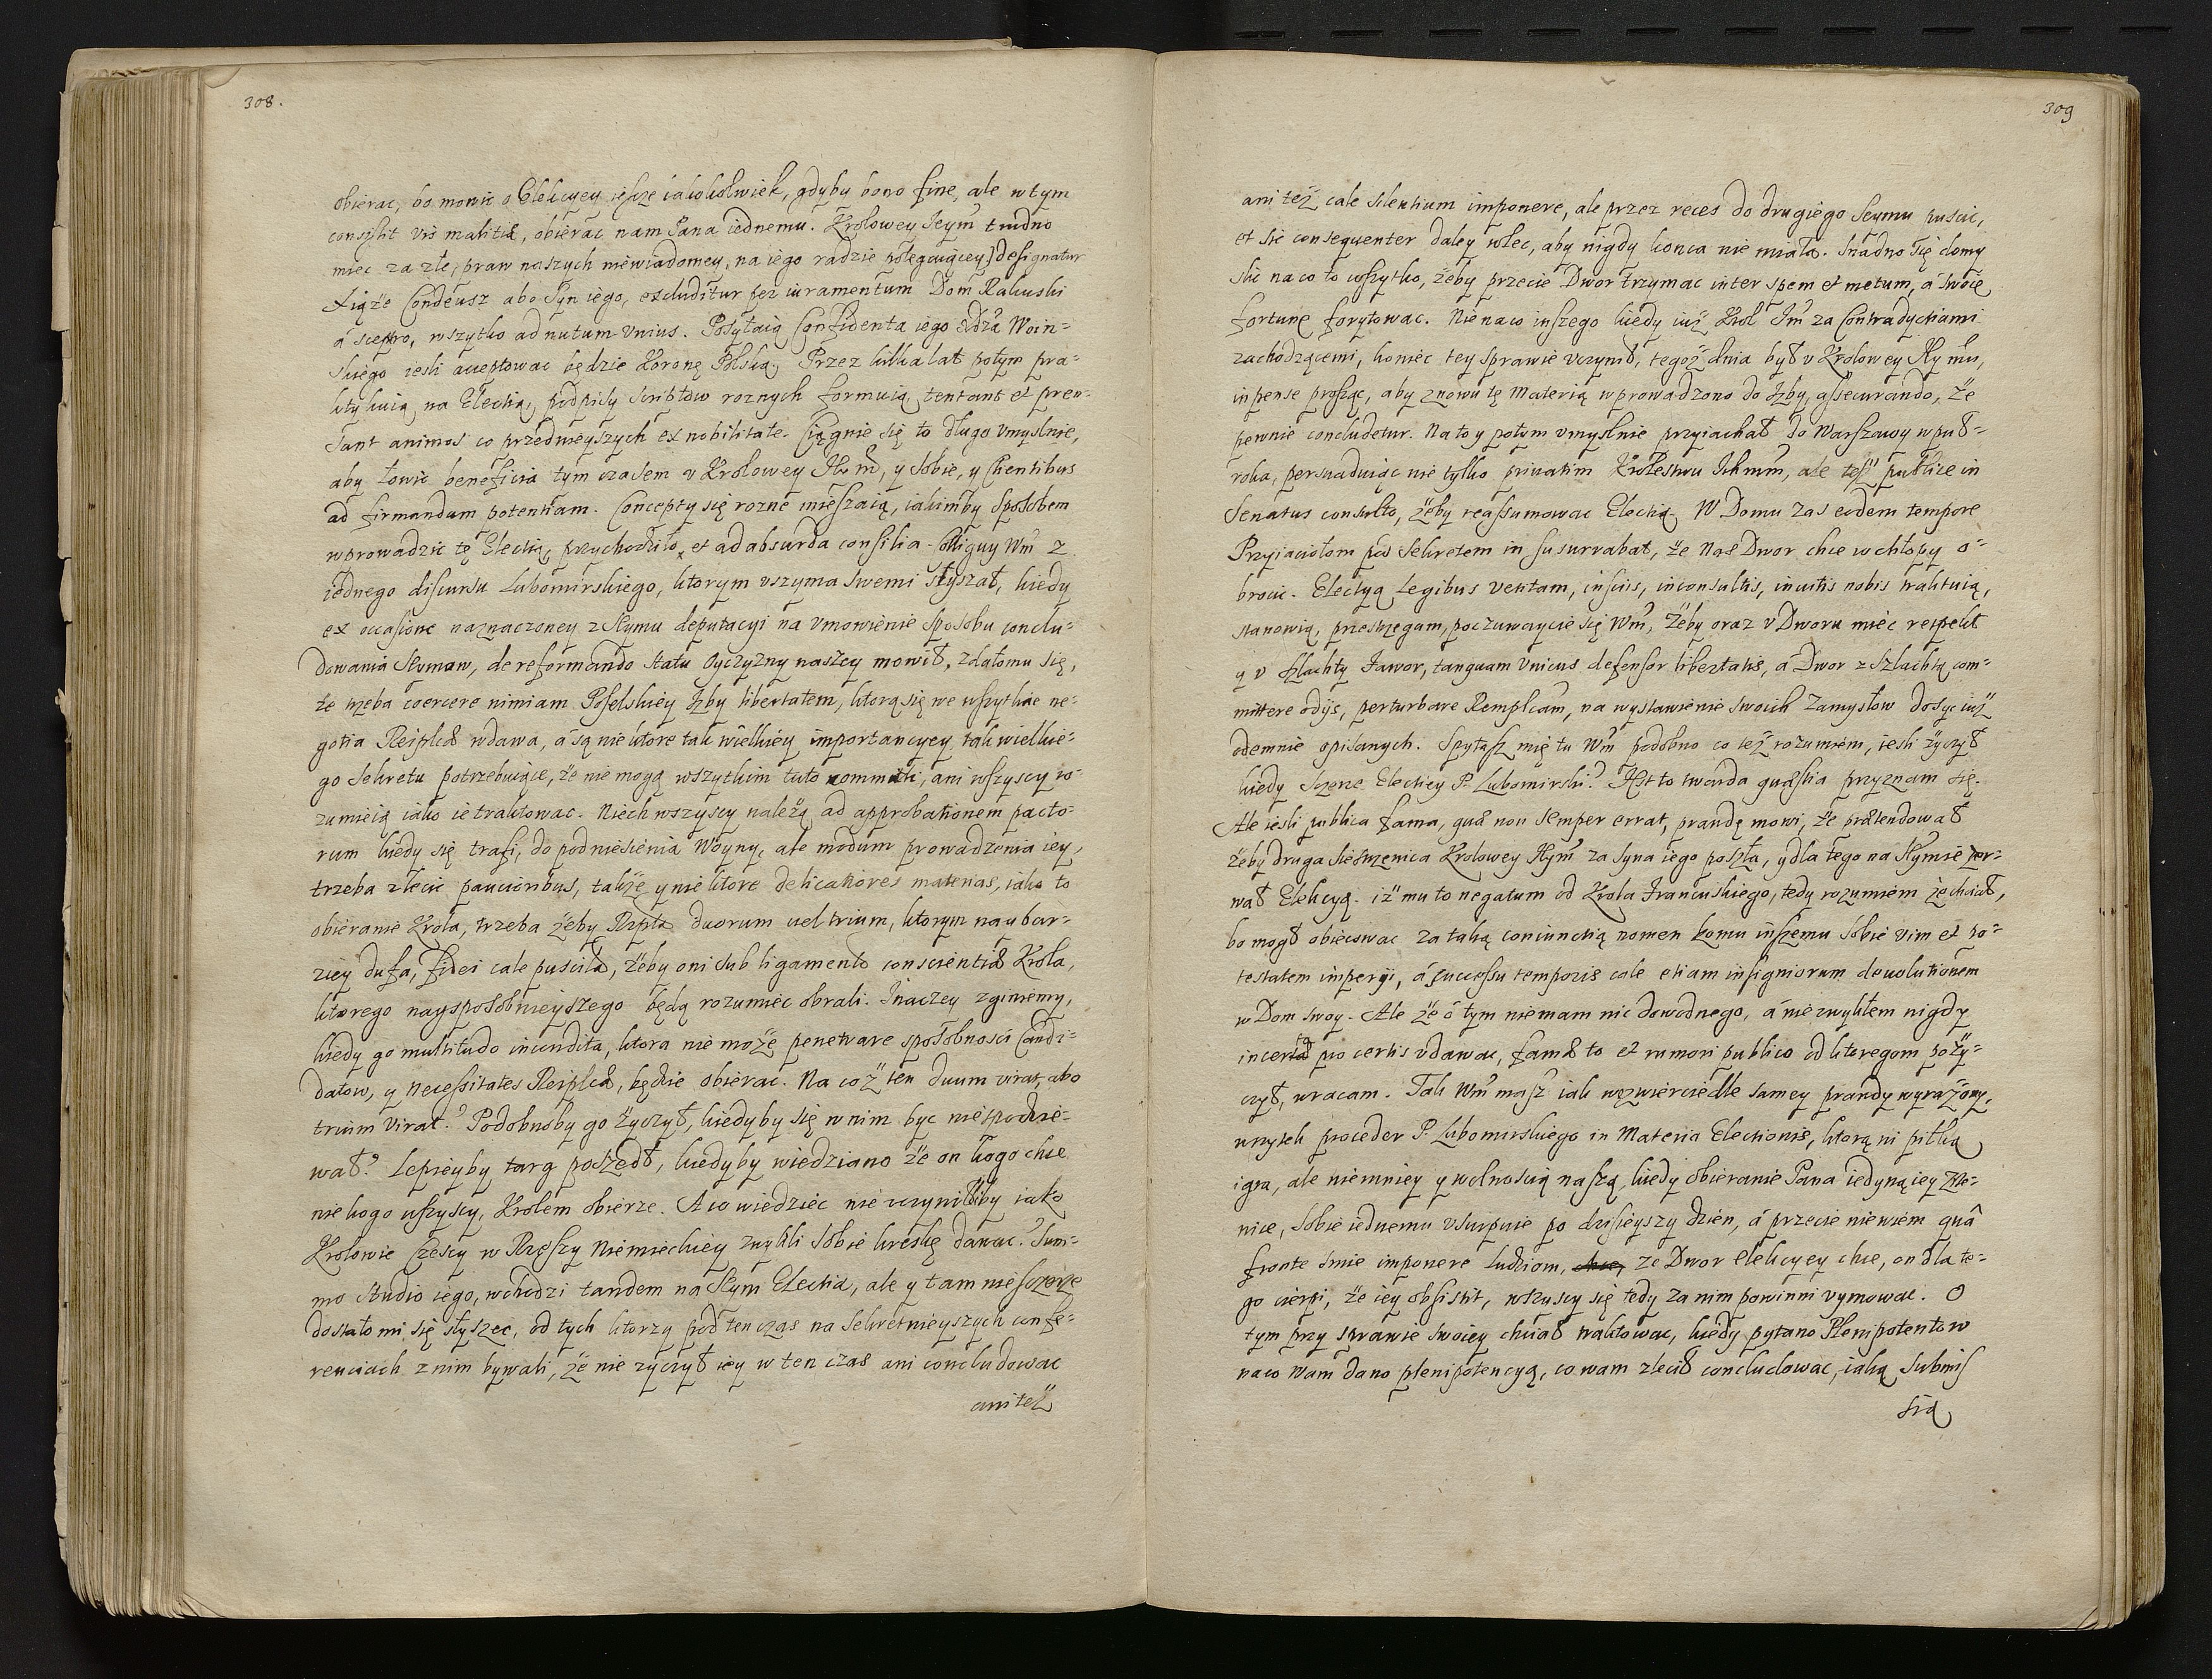 308.
obierac, bo mowic o Elekcyey ieszcze iakokolwiek, gdyby bono fine, ale w tym
consistit vis malitiæ, obierac nam Pana iednemu. Krolowey Jeym trudno
miec za złe, praw naszych niewiadomey, na iego radzie polegaiącey) designatur
Xiąże Condeusz abo Syn iego, excluditur per iuramentum Dom Rakuski
á sceptro, wszytko ad nutum vnius. Posyłaią Confidenta iego Woin=
skiego iesli acceptowac będzie Koronę Polską. Przez kilka lat potym pra=
ktykuią na Electią, podpisy scriptow roznych formuią, tentant et pren=
sant animos co przednieyszych ex nobilitate. Ciągnie się to długo vmyslnie,
aby łowic beneficia tym czasem v Krolowey, y sobie, y Clientibus
ad firmandam potentiam. Concepty się rozne mieszaią, iakimby sposobem
wprowadzic tę Electią, przychodziło et ad absurda consilia. Colliguy Wm z
iednego discursu Lubomirskiego, ktorym vszyma swemi słyszał, kiedy
ex occasione naznaczoney z Seymu deputacyi na vmowienie sposobu conclu=
dowania Seymow, de reformando statu Oyczyzny naszey mowił, zdałomu się,
że trzeba coercere nimiam Poselskiey Izby libertatem, ktora się we wszytkie ne=
gotia Reiplcæ wdawa, á są niektore tak wielkiey importancyey, tak wielkie=
go sekretu potrzebuiące, że nie mogą wszytkim tuto committi, ani wszyscy ro=
zumieią iako ie traktowac. Niech wszyscy należą ad approbationem pacto=
rum kiedy się trafi, do podniesienia Woyny, ale modum prowadzenia iey,
trzeba zlecic paucioribus, także y niektore delicatiores materias, iako to
obieranie Krola, trzeba żeby Rzplta duorum uel trium, ktorym naybar=
ziey dufa, fidei cale pusciła, żeby oni sub ligamento conscientiæ Krola,
ktorego naysposobnieyszego będą rozumiec obrali. Inaczey zginiemy,
kiedy go multitudo incondita, ktora nie może penetrare sposobnosci Candi=
datow, y necessitates Reiplcæ, będzie obierac. Na coż ten duum virat, abo
trium virat? Podobnoby go życzył, kiedyby się w nim byc nie spodzie=
wał? Lepieyby targ poszedł, kiedyby wiedziano że on kogo chce
nie kogo wszyscy, Krolem obierze. A co wiedziec nie vczyniliby iako
Krolowie Czescy w Rzeszy Niemieckiey zwykli sobie kreskę dawac? Sum=
mo studio iego, wchodzi tandem na Seym Electia, ale y tam nieszczerze
dostało mi się słyszec, od tych ktorzy pod ten czas na sekretnieyszych confe=
renciach z nim bywali, że nie życzył iey w ten czas ani concludowac
ani też
309
ani też cale silentium imponere, ale przez reces do drugiego Seymu puscic,
et sic consequenter daley wlec, aby nigdy konca nie miała. Snadno się domy
slic na co to wszytko, żeby przecie Dwor trzymac inter spem et metum, á swoię
fortunę forytowac. Nie na co inszego kiedy iuż Krol Jm za Contradyctiami
zachodzącemi, koniec tey sprawie vczynił, tegoż dnia był v Krolowey,
inpense prosząc, aby znowu tę Materią wprowadzono do Izby, assecurando, że
pewnie concludetur. Na to y potym vmyslnie przyiachał do Warszawy w puł=
roka, persuaduiąc nie tylko priuatim Krolestwu Ichmm, ale też publice in
Senatus consulto, żeby reassumowac Electią. W Domu zas eodem tempore
Przyiaciołom pod Sekretem in susurrabat, że Nas Dwor chce w chłopy o=
brocic. Electyą Legibus vetitam, insciis, inconsultis, inuitis nobis traktuią,
stanowią, przestrzegam, poczuwaycie się Wm, żeby oraz v Dworu miec respekt
y v szlachty Fawor, tanquam vnicus defensor libertatis, á Dwor z Szlachtą com=
mittere odijs, perturbare Remplcam, na wystawienie swoich zamysłow dosyc iuż
odemnie opisanych. Spytasz mię tu Wm podobno co też rozumiem, iesli życzył
kiedy szczerze Electiey P. Lubomirski? Jest to twarda quæstia przyznam się.
Ale iesli publica fama, quæ non semper errat, prawdę mowi, że prætendował
żeby druga siestrzenica Krolowey za syna iego poszła, y dla tego na Seymie zer=
wał Elekcyą. iż mu to negatum od Krola Francuskiego, tedy rozumiem że chciał,
bo mogł obiecowac za taką coniunctią nomen komu inszemu sobie vim et po=
testatem imperij, á successu temporis cale etiam insigniorum deuolutionem
w Dom swoy. Ale że ó tym niemam nic dowodnego, á nie zwykłem nigdy
incerta pro certis vdawac, famæ to et rumori publico od ktoregom poży=
czył, wracam. Tak Wm masz iak w zwierciedle samey prawdy wyrażony,
wszytek proceder P. Lubomirskiego in Materia Electionis, ktorą ni piłką
igra, ale niemniey y wolnoscią naszą, kiedy obieranie Pana iedyną iey Zrze=
nice, sobie iednemu vsurpuie po dzisieyszy dzien, á przecie niewiem quâ
fronte smie imponere ludziom, ze Dwor elekcyey chce, on dla te=
go cierpi, że iey obsistit, wszyscy się tedy za nim powinni vymowac. O
tym przy sprawie swoiey chciał traktowac, kiedy pytano Plenipotentow
na co wam dano plenipotencyą, co wam zlecił concludowac, iaką submis
sią